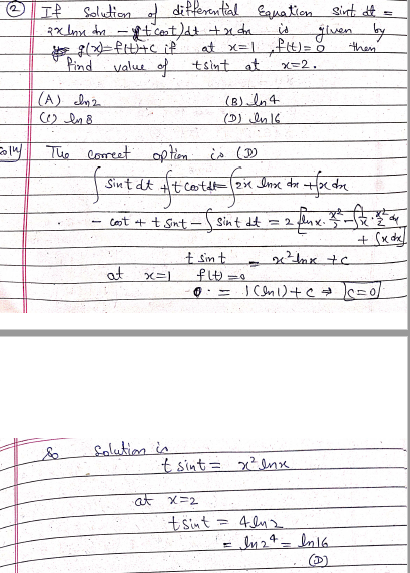 ② If solution of differential Equation sint. dt =
2x lnx dx - (t cost) dt + x dx is given by
g(x) = f(t) + c if at x=1, f(t)=0 then
find value of t sint at x=2.
(A) ln2 (B) ln4
(C) ln8 (D) ln16
Solⁿ) The correct option is (D)
∫ sint dt + ∫ t cost dt = ∫ 2x lnx dx + ∫ x dx
- cost + t sint - ∫ sint dt = 2 [lnx. x²/2 - ∫ 1/x . x²/2 dx
+ ∫ x dx]
t sint = x² lnx + c
at x=1 f(t)=0
0 = 1 (ln1) + c ⇒ c=0
So Solution is
t sint = x² lnx
at x=2
t sint = 4 ln2
= ln2⁴ = ln16
(D)